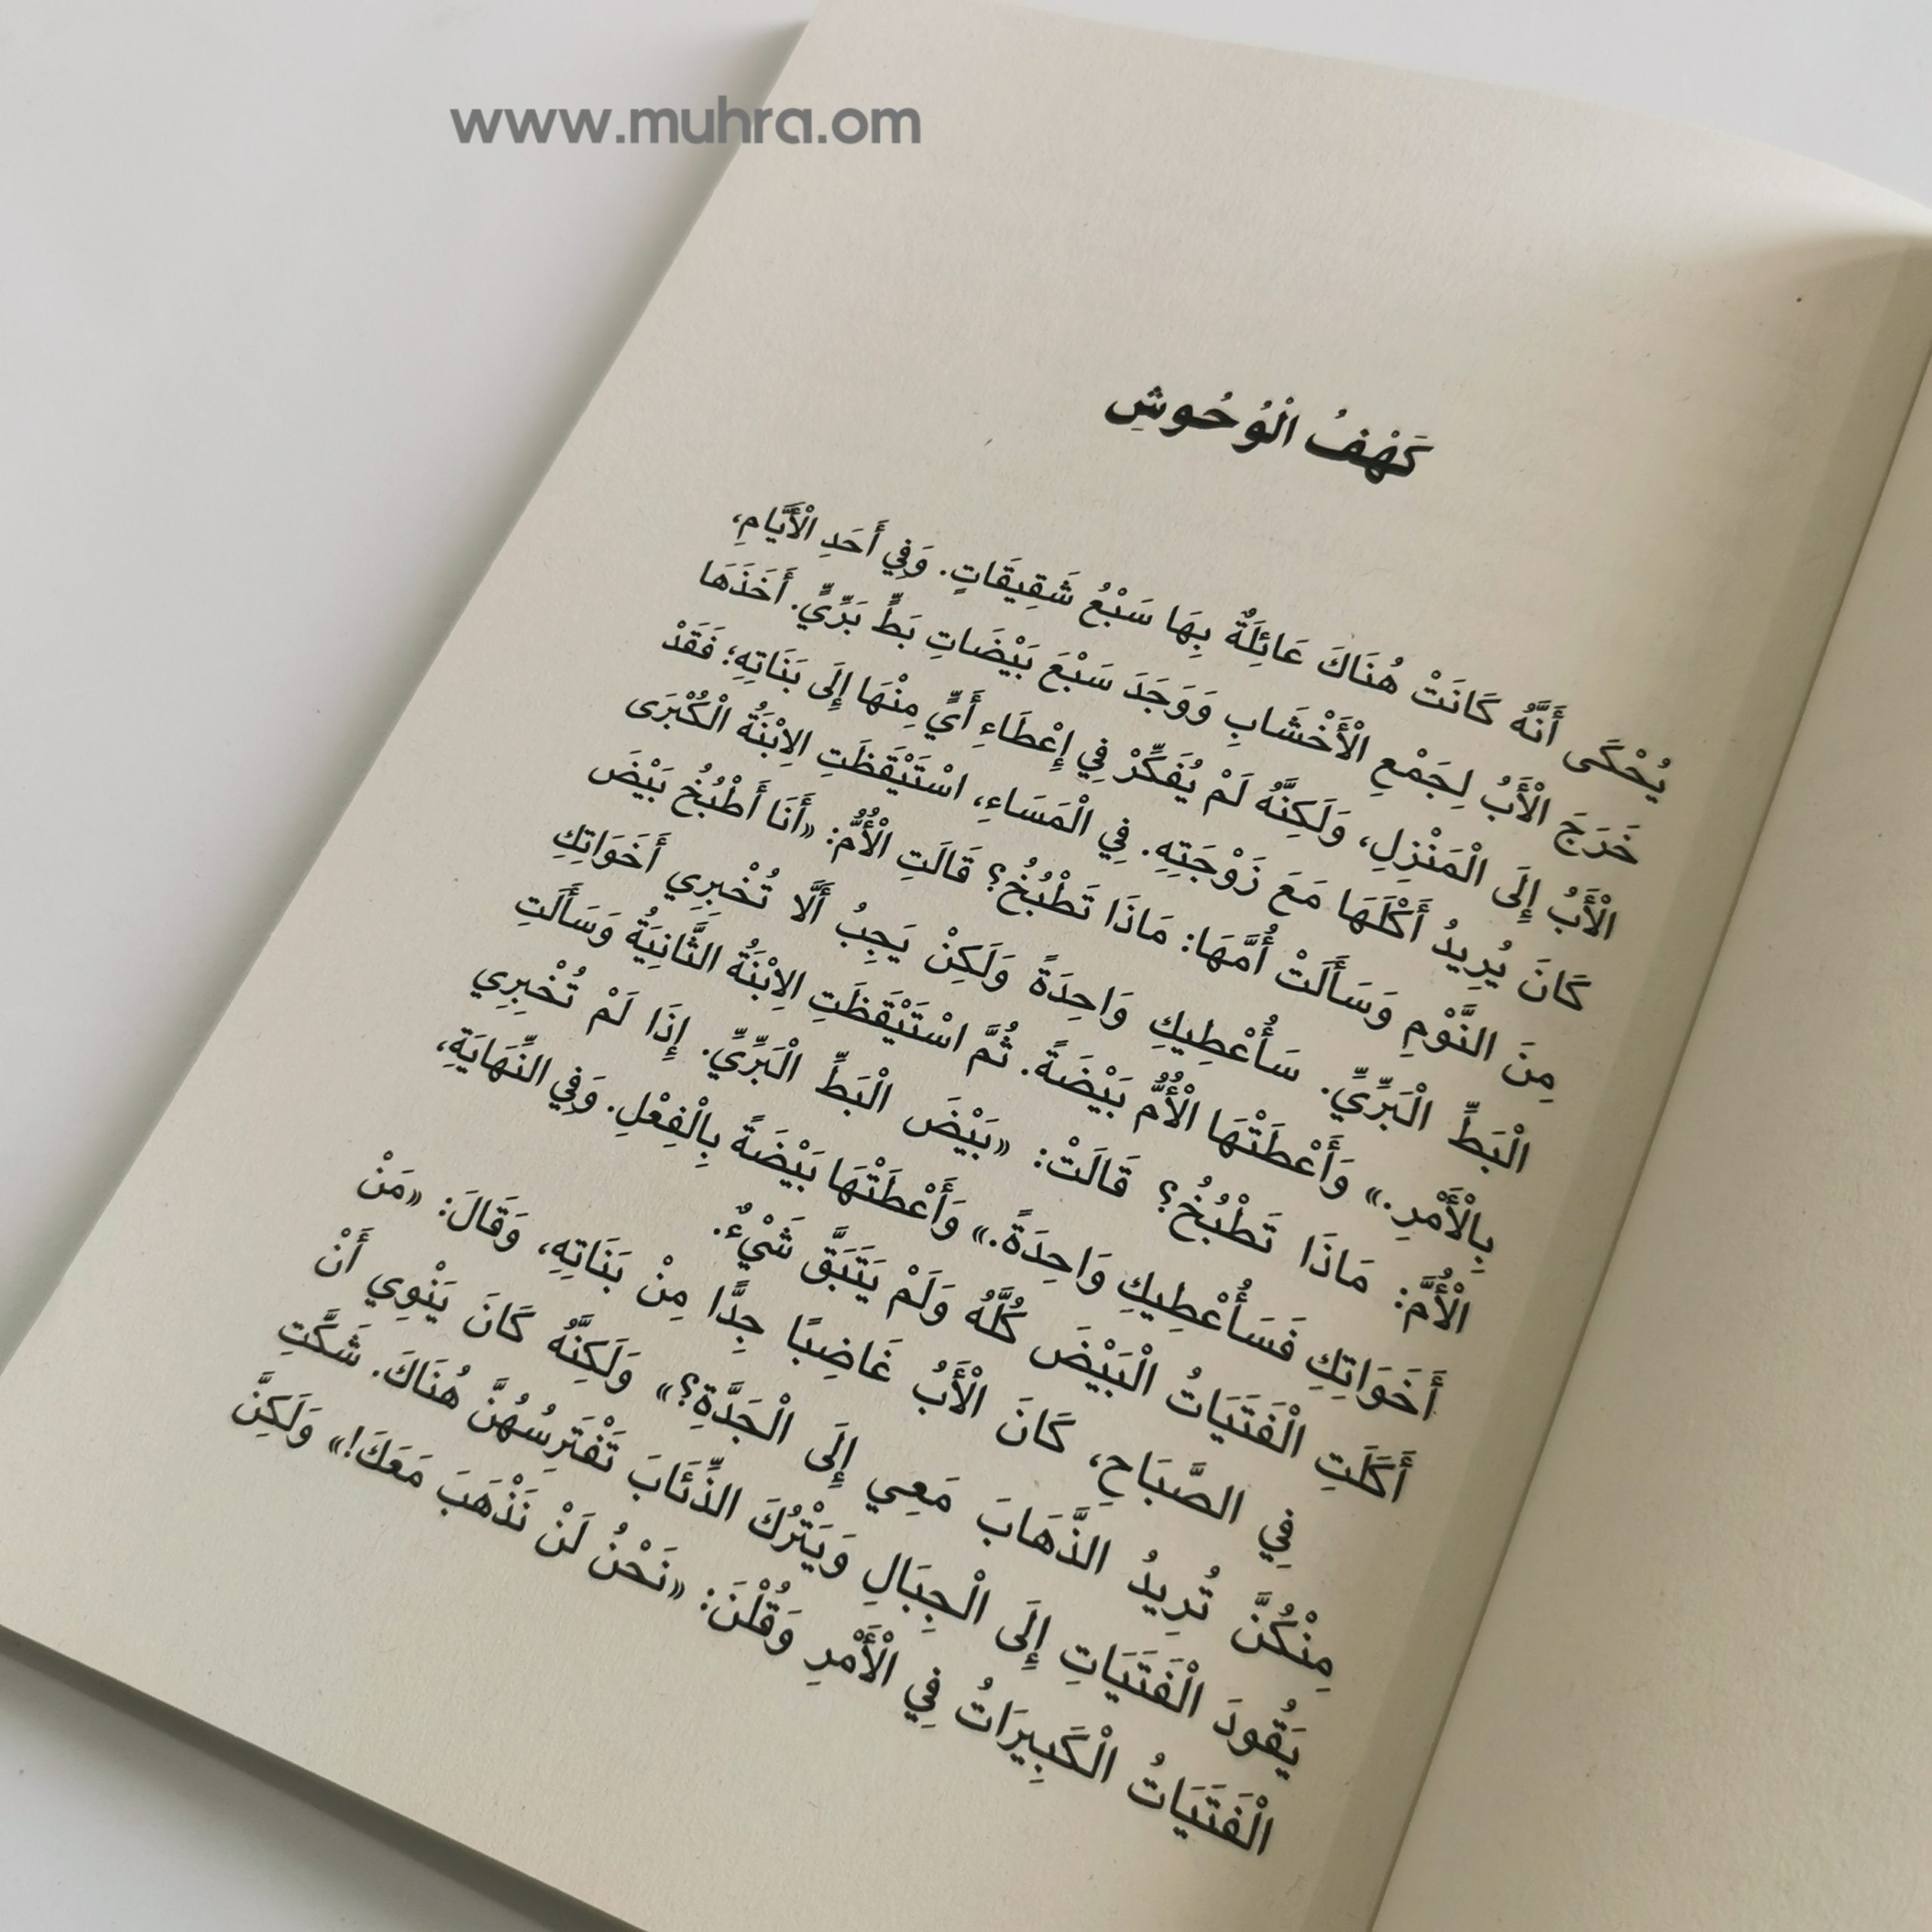 www.muhra.om
كَهْفُ الْوُحُوشِ
يُحْكَى أَنَّهُ كَانَتْ هُنَاكَ عَائِلَةٌ بِهَا سَبْعُ شَقِيقَاتٍ. وَفِي أَحَدِ الْأَيَّامِ،
خَرَجَ الْأَبُ لِجَمْعِ الْأَخْشَابِ وَوَجَدَ سَبْعَ بَيْضَاتِ بَطٍّ بَرِّيٍّ. أَخَذَهَا
الْأَبُ إِلَى الْمَنْزِلِ، وَلَكِنَّهُ لَمْ يُفَكِّرْ فِي إِعْطَاءِ أَيٍّ مِنْهَا إِلَى بَنَاتِهِ؛ فَقَدْ
كَانَ يُرِيدُ أَكْلَهَا مَعَ زَوْجَتِهِ. فِي الْمَسَاءِ، اسْتَيْقَظَتِ الِابْنَةُ الْكُبْرَى
مِنَ النَّوْمِ وَسَأَلَتْ أُمَّهَا: مَاذَا تَطْبُخُ؟ قَالَتِ الْأُمُّ: «أَنَا أَطْبُخُ بَيْضَ
الْبَطِّ الْبَرِّيِّ. سَأُعْطِيكِ وَاحِدَةً وَلَكِنْ يَجِبُ أَلَّا تُخْبِرِي أَخَوَاتِكِ
بِالْأَمْرِ.» وَأَعْطَتْهَا الْأُمُّ بَيْضَةً. ثُمَّ اسْتَيْقَظَتِ الِابْنَةُ الثَّانِيَةُ وَسَأَلَتِ
الْأُمَّ: مَاذَا تَطْبُخُ؟ قَالَتْ: «بَيْضَ الْبَطِّ الْبَرِّيِّ. إِذَا لَمْ تُخْبِرِي
أَخَوَاتِكِ فَسَأُعْطِيكِ وَاحِدَةً.» وَأَعْطَتْهَا بَيْضَةً بِالْفِعْلِ. وَفِي النِّهَايَةِ،
أَكَلَتِ الْفَتَيَاتُ الْبَيْضَ كُلَّهُ وَلَمْ يَتَبَقَّ شَيْءٌ.
فِي الصَّبَاحِ، كَانَ الْأَبُ غَاضِبًا جِدًّا مِنْ بَنَاتِهِ، وَقَالَ: «مَنْ
مِنْكُنَّ تُرِيدُ الذَّهَابَ مَعِي إِلَى الْجَدَّةِ؟» وَلَكِنَّهُ كَانَ يَنْوِي أَنْ
يَقُودَ الْفَتَيَاتِ إِلَى الْجِبَالِ وَيَتْرُكَ الذِّئَابَ تَفْتَرِسُهُنَّ هُنَاكَ. شَكَّتِ
الْفَتَيَاتُ الْكَبِيرَاتُ فِي الْأَمْرِ وَقُلْنَ: «نَحْنُ لَنْ نَذْهَبَ مَعَكَ!» وَلَكِنَّ